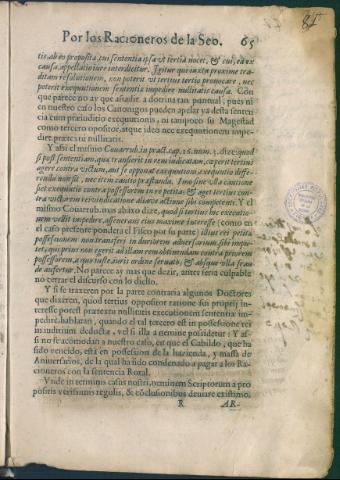 Por los Racioneros de la Seo. 65
tis, ab eo proposita, cui sententia ipsa vt tertio nocet, & cui, ea ex
causa, appellatio iure interdicitur. Igitur qui iuxta proxime tra-
ditam resolutionem, non poterit vt tertius tertio prouocare, nec
poterit exequutionem sententiæ impedire nullitatis causa. Con
que parece no ay que añadir a dotrina tan puntual, pues ni
en nuestro caso los Canonigos pueden apelar ya desta senten-
cia cum præiuditio exequutionis, ni tampoco su Magestad
como tercero opositor, atque ideo nec exequutionem impe-
dire prætextu nullitatis.
Y assi el mismo Couarrub. in pract. cap. 16. num. 3. dize: quod
si post sententiam, quæ transierit in rem iudicatam, cæperit tertius
agere contra victum, aut se opponat exequutioni, exequutio diffe-
renda non sit, nec item cautio præstanda. Imo sine vlla cautione
fiet exequutio contra possessorem in re petita: & aget tertius con-
tra victorem rei vindicatione aliave actione sibi competenti. Y el
mismo Couarrub. mas abaxo dize, quod si tertius hic exequutio-
nem velit impedire, asserens eius maxime interesse (como en
el caso presente pondera el Fisco por su parte) illius rei petitæ
possessionem non transferri in duriorem aduersarium, sibi impu-
tet, qui prius non egerit ad illam rem obtinendam contra priorem
possessorem, a quo iuste à iuris ordine seruato, & absque vlla frau-
de aufertur. No parece ay mas que dezir, antes seria culpable
no cerrar el discurso con lo dicho.
Y si se traxeren por la parte contraria algunos Doctores
que dixeren, quod tertius oppositor ratione sui proprij in-
teresse potest prætextu nullitatis exequutionem sententiæ im-
pedire, hablaran, quando el tal tercero est in possessione rei
in iuditium deducta, vel si illa à nemine possidetur: Y as-
si no se acomodan a nuestro caso, en que el Cabildo, que ha
sido vencido, está en possession de la hazienda, y massa de
Aniuersarios, de la qual ha sido condenado a pagar a los Ra-
cioneros con la sentencia Rotal.
Vnde in terminis casus nostri, neminem Scriptorum à pro
positis verissimis regulis, & cōclusionibus deuiare existimo.
R AR-